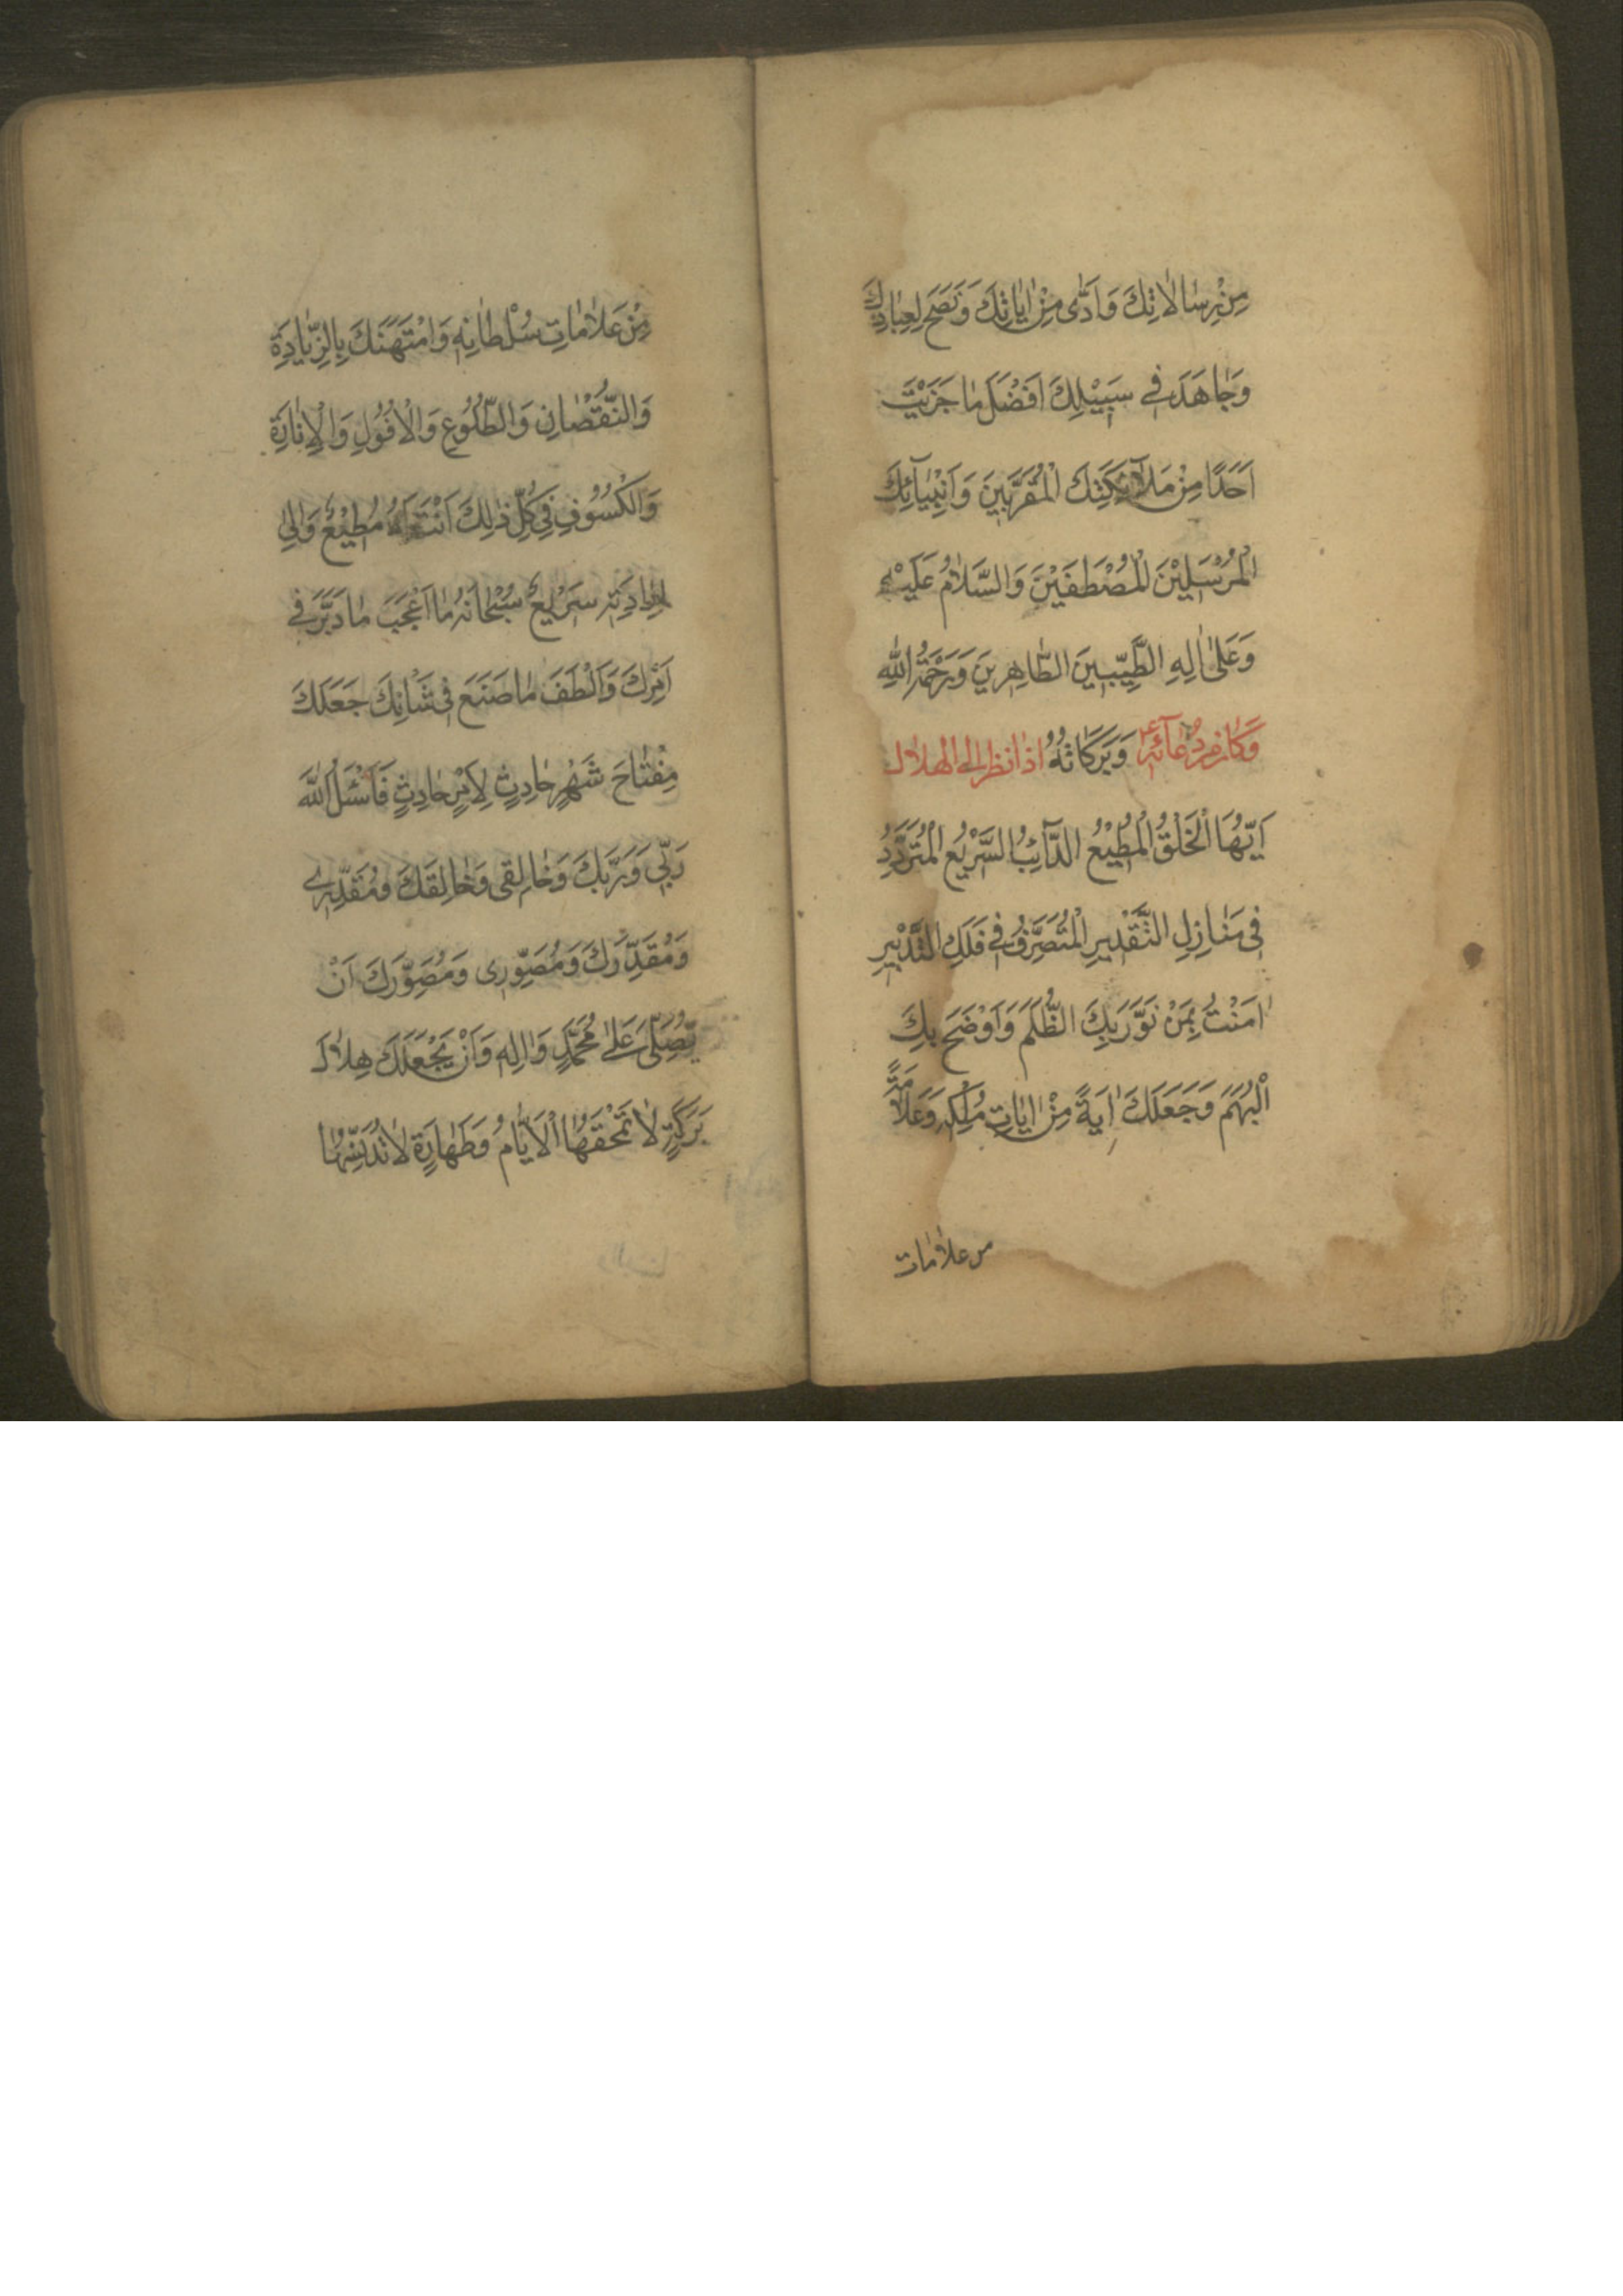 مِنْ رِسٰالاٰتِكَ وَاَدّٰى مِنْ اٰيٰاتِكَ وَنَصَحَ لِعِبٰادِكَ
وَجٰاهَدَ فِي سَبِيْلِكَ اَفْضَلَ مٰا جَزَيْتَ
اَحَدًا مِنْ مَلآئِكَتِكَ الْمُقَرَّبِينَ وَاَنْبِيٰآئِكَ
الْمُرْسَلِيْنَ الْمُصْطَفَيْنَ وَالسَّلاٰمُ عَلَيْهِ
وَعَلىٰ اٰلِهِ الطَّيِّبِينَ الطّٰاهِرِينَ وَرَحْمَةُ اللهِ
وَبَرَكَاتُهُ وَكَانَ مِنْ دُعٰآئِهِ ع اذا نظر الى الهلال
اَيُّهَا الْخَلْقُ الْمُطِيْعُ الدَّآئِبُ السَّرِيْعُ الْمُتَرَدِّدُ
فِى مَنٰازِلِ التَّقْدِيرِ الْمُتَصَرِّفُ فِي فَلَكِ التَّدْبِيرِ
اٰمَنْتُ بِمَنْ نَوَّرَ بِكَ الظُّلَمَ وَاَوْضَحَ بِكَ
الْبُهَمَ وَجَعَلَكَ اٰيَةً مِنْ اٰيٰاتِ مُلْكِهِ وَعَلاٰمَةً
من علاٰمٰات
مِنْ عَلاٰمٰاتِ سُلْطٰانِهِ وَامْتَهَنَكَ بِالزِّيٰادَةِ
وَالنُّقْصٰانِ وَالطُّلُوْعِ وَالْاُفُوْلِ وَالْاِنٰارَةِ
وَالْكُسُوْفِ فِي كُلِّ ذٰلِكَ اَنْتَ لَهُ مُطِيْعٌ وَاِلىٰ
اِرٰادَتِهِ سَرِيْعٌ سُبْحٰانَهُ مٰا اَعْجَبَ مٰا دَبَّرَ فِي
اَمْرِكَ وَاَلْطَفَ مٰا صَنَعَ فِى شَاْنِكَ جَعَلَكَ
مِفْتٰاحَ شَهْرٍ حٰادِثٍ لِاَمْرٍ حٰادِثٍ فَاَسْئَلُ اللهَ
رَبِّي وَرَبَّكَ وَخٰالِقِى وَخٰالِقَكَ وَمُقَدِّرِي
وَمُقَدِّرَكَ وَمُصَوِّرِى وَمُصَوِّرَكَ اَنْ
يُصَلِّىَ عَلىٰ مُحَمَّدٍ وَاٰلِهِ وَاَنْ يَجْعَلَكَ هِلاٰلَ
بَرَكَةٍ لاٰ تَمْحَقُهَا الْاَيّٰامُ وَطَهٰارَةٍ لاٰ تُدَنِّسُهَا